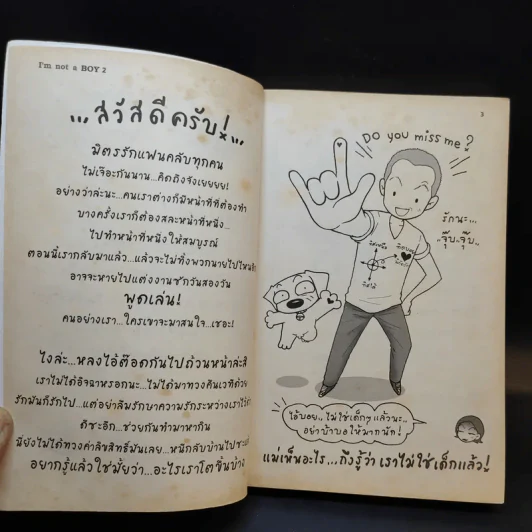 I'm not a BOY 2
...สวัสดีครับ!...
มิตรรักแฟนคลับทุกคน
ไม่เจอะกันนาน...คิดถึงจังเยยยย!
อย่างว่าล่ะนะ...คนเราต่างก็มีหน้าที่ที่ต้องทำ
บางครั้งเราก็ต้องสละหน้าที่หนึ่ง...
ไปทำหน้าที่หนึ่งให้สมบูรณ์
ตอนนี้เรากลับมาแล้ว...แล้วจะไม่ทิ้งพวกนายไปไหนอีก
อาจจะหายไปแต่งงานซักวันสองวัน
พูดเล่น!
คนอย่างเรา...ใครเขาจะมาสนใจ...เชอะ!
ไงล่ะ...หลงไอ้ต๊อดกันไปถ้วนหน้าล่ะสิ
เราไม่ได้อิจฉาหรอกนะ...ไม่ได้มาทวงคืนเวทีด้วย
รักมันก็รักไป...แต่อย่าลืมรักษาความรักระหว่างเราไว้
ดิซะอีก...ช่วยกันทำมาหากิน
นี่ยังไม่ได้ทวงค่าลิขสิทธิ์มันเลย...หนีกลับบ้านไปซะ
อยากรู้แล้วใช่มั้ยว่า...อะไรเราโตขึ้นบ้าง
3
Do you miss me?
รักนะ...
จุ๊บ จุ๊บ
ไอ้บอย.. ไม่ใช่เด็กๆ แล้วนะ..
อย่าบ้าบอให้มากนัก!
แม่เห็นอะไร...ถึงรู้ว่า เราไม่ใช่เด็กแล้ว!